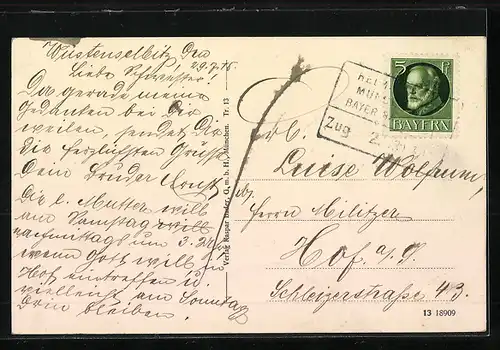 Wüstenselbitz, den
29.7.15
Liebe Schwester!
Da gerade meine
Gedanken bei Dir
weilen, sendet Dir
die herzlichsten Grüße
Dein Bruder Ernst.
Die l. Mutter will
am Samstag
nachmittags um 3.
wenn Gott will in
Hof eintreffen u.
vielleicht am Sonntag
drin bleiben.
Verlag Kaspar Bader, G. m. b. H., München. Tr. 13
5 Pf
BAYERN
MÜN
BAYER.
Zug 2
Luise Wolfrum,
Herrn Militzer
Hof a/S.
Schleizerstraße 43.
13 18909